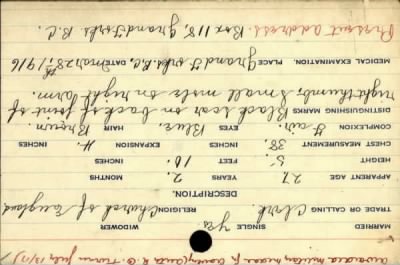 awarded military medal for bravery (auth R.O. from July 13/17)
MARRIED SINGLE yes. WIDOWER
TRADE OR CALLING Clerk. RELIGION Church of England
DESCRIPTION.
APPARENT AGE 27 YEARS 2. MONTHS
HEIGHT 5. FEET 10. INCHES
CHEST MEASUREMENT 38. INCHES EXPANSION 4. INCHES
COMPLEXION Fair. EYES Blue. HAIR Brown.
DISTINGUISHING MARKS Black scar on back of joint of
right thumb, small mole on right arm.
MEDICAL EXAMINATION. PLACE Grand Forks, B.C. DATE Mar 28th, 1916
Present address. Box 118, Grand Forks B.C.